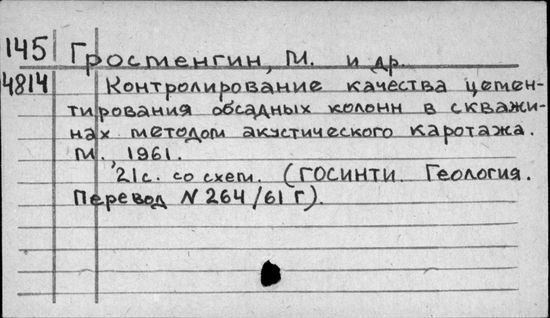 145 Гросменгин, М. и др.
4814 Контролирование качества цемен-
тирования обсадных колонн в скважи-
нах методом акустического каротажа.
М., 1961.
21с. со схем. (ГОСИНТИ. Геология.
Перевод N 264/61 Г).